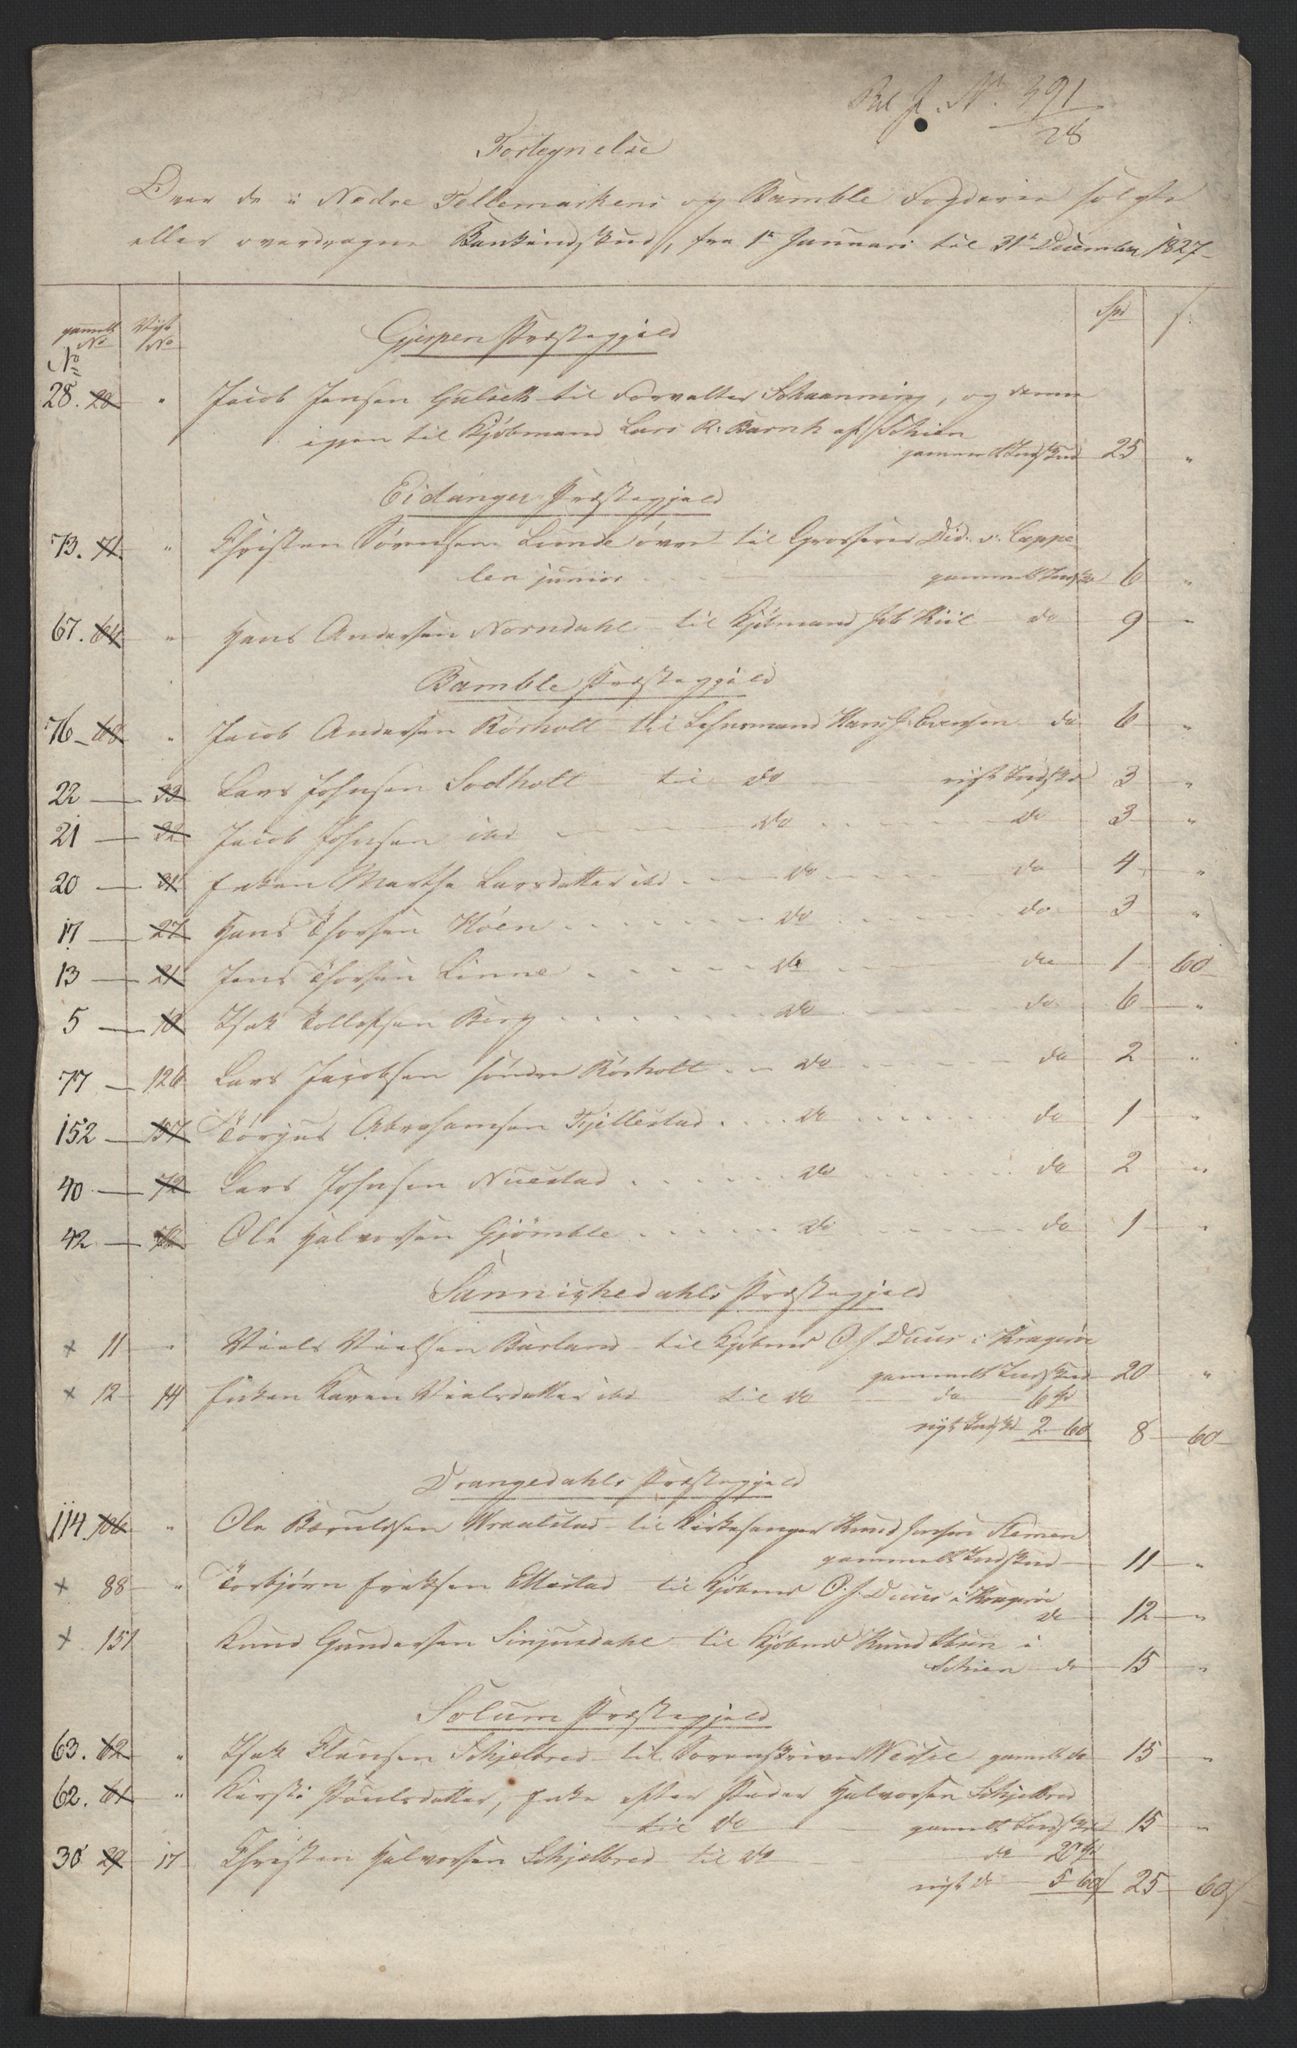 J. No. 391
28
Fortegnelse
Over de i Nedre Tellemarkens og Bamble Fogderier solgte
eller overdragne Bankindskud, fra 1te Januari til 31te December 1827
gammelt No nyt No Spd s:
Gjerpen Præstegjeld
No
28. 28 " Jacob Jensen Gulseth til Forvalter Schaanning, og denne
igjen til Kjøbmand Lars R. af Schien
gammelt Indskud 25 "
Eidanger Præstegjeld
73. 71 " Christen Sørensen Lunde øvre til Grosserer Did. v. Cappe
len junior gammelt Indskd 6 "
67. 64 " Hans Andersen Norndahl til Kjøbmand Kiil do 9 "
Bamble Præstegjeld
76 68 " Jacob Andersen Rørholt til Lehnsmand Hans J. Evensen do 6 "
22 33 Lars Johnsen Sodholt til do nyt Indskd 3 "
21 32 Jacob Johnsen ibd do do 3 "
20 31 Enken Marthe Larsdatter ibd do do 4 "
17 27 Hans Thorsen Høen do do 3 "
13 21 Jens Thorsen Linne do do 1 60
5 10 Isak Tollefsen Berg do do 6 "
77 126 Lars Jacobsen søndre Rørholt do do 2 "
152 157 Törgus Abrahamsen Fjellestad do do 1 "
40 72 Lars Johnsen Nuestad do do 2 "
42 Ole Halvorsen Gjömble do do 1 "
Sannichedahls Præstegjeld
x 11 " Niels Nielsen Barland til Kjøbmd O. J. Duus i Kragerøe
gammelt Indskud 20 "
x 12 14 Enken Karen Nielsdatter ibd til do do 6 Sp
nyt Indskd 2 60 8 60
Drangedahls Præstegjeld
114. 106 " Ole Bæruldsen Wraalstad til Kirkesanger Knud Jensen
gammelt Indskud 11 "
x 88 " Torbjörn Eriksen Ettestad til Kjøbmd O. J. Duus i Kragerøe
do 12 "
x 151 Knud Gundersen Sinjusdahl til Kjøbmd Knud i
Schien do 15 "
Solum Præstegjeld
63. 62 " Isak Clausen Schjelbred til Sorenskriver Wessel gamelt do 15 "
62. 61 " Kirsti Povelsdatter, Enke efter Peder Halvorsen Schjelbred
til do gamelt Indskud 15 "
30 29 17 Christen Halvorsen Schjelbred til do do 20 Sp
nyt do 5 60 25 60